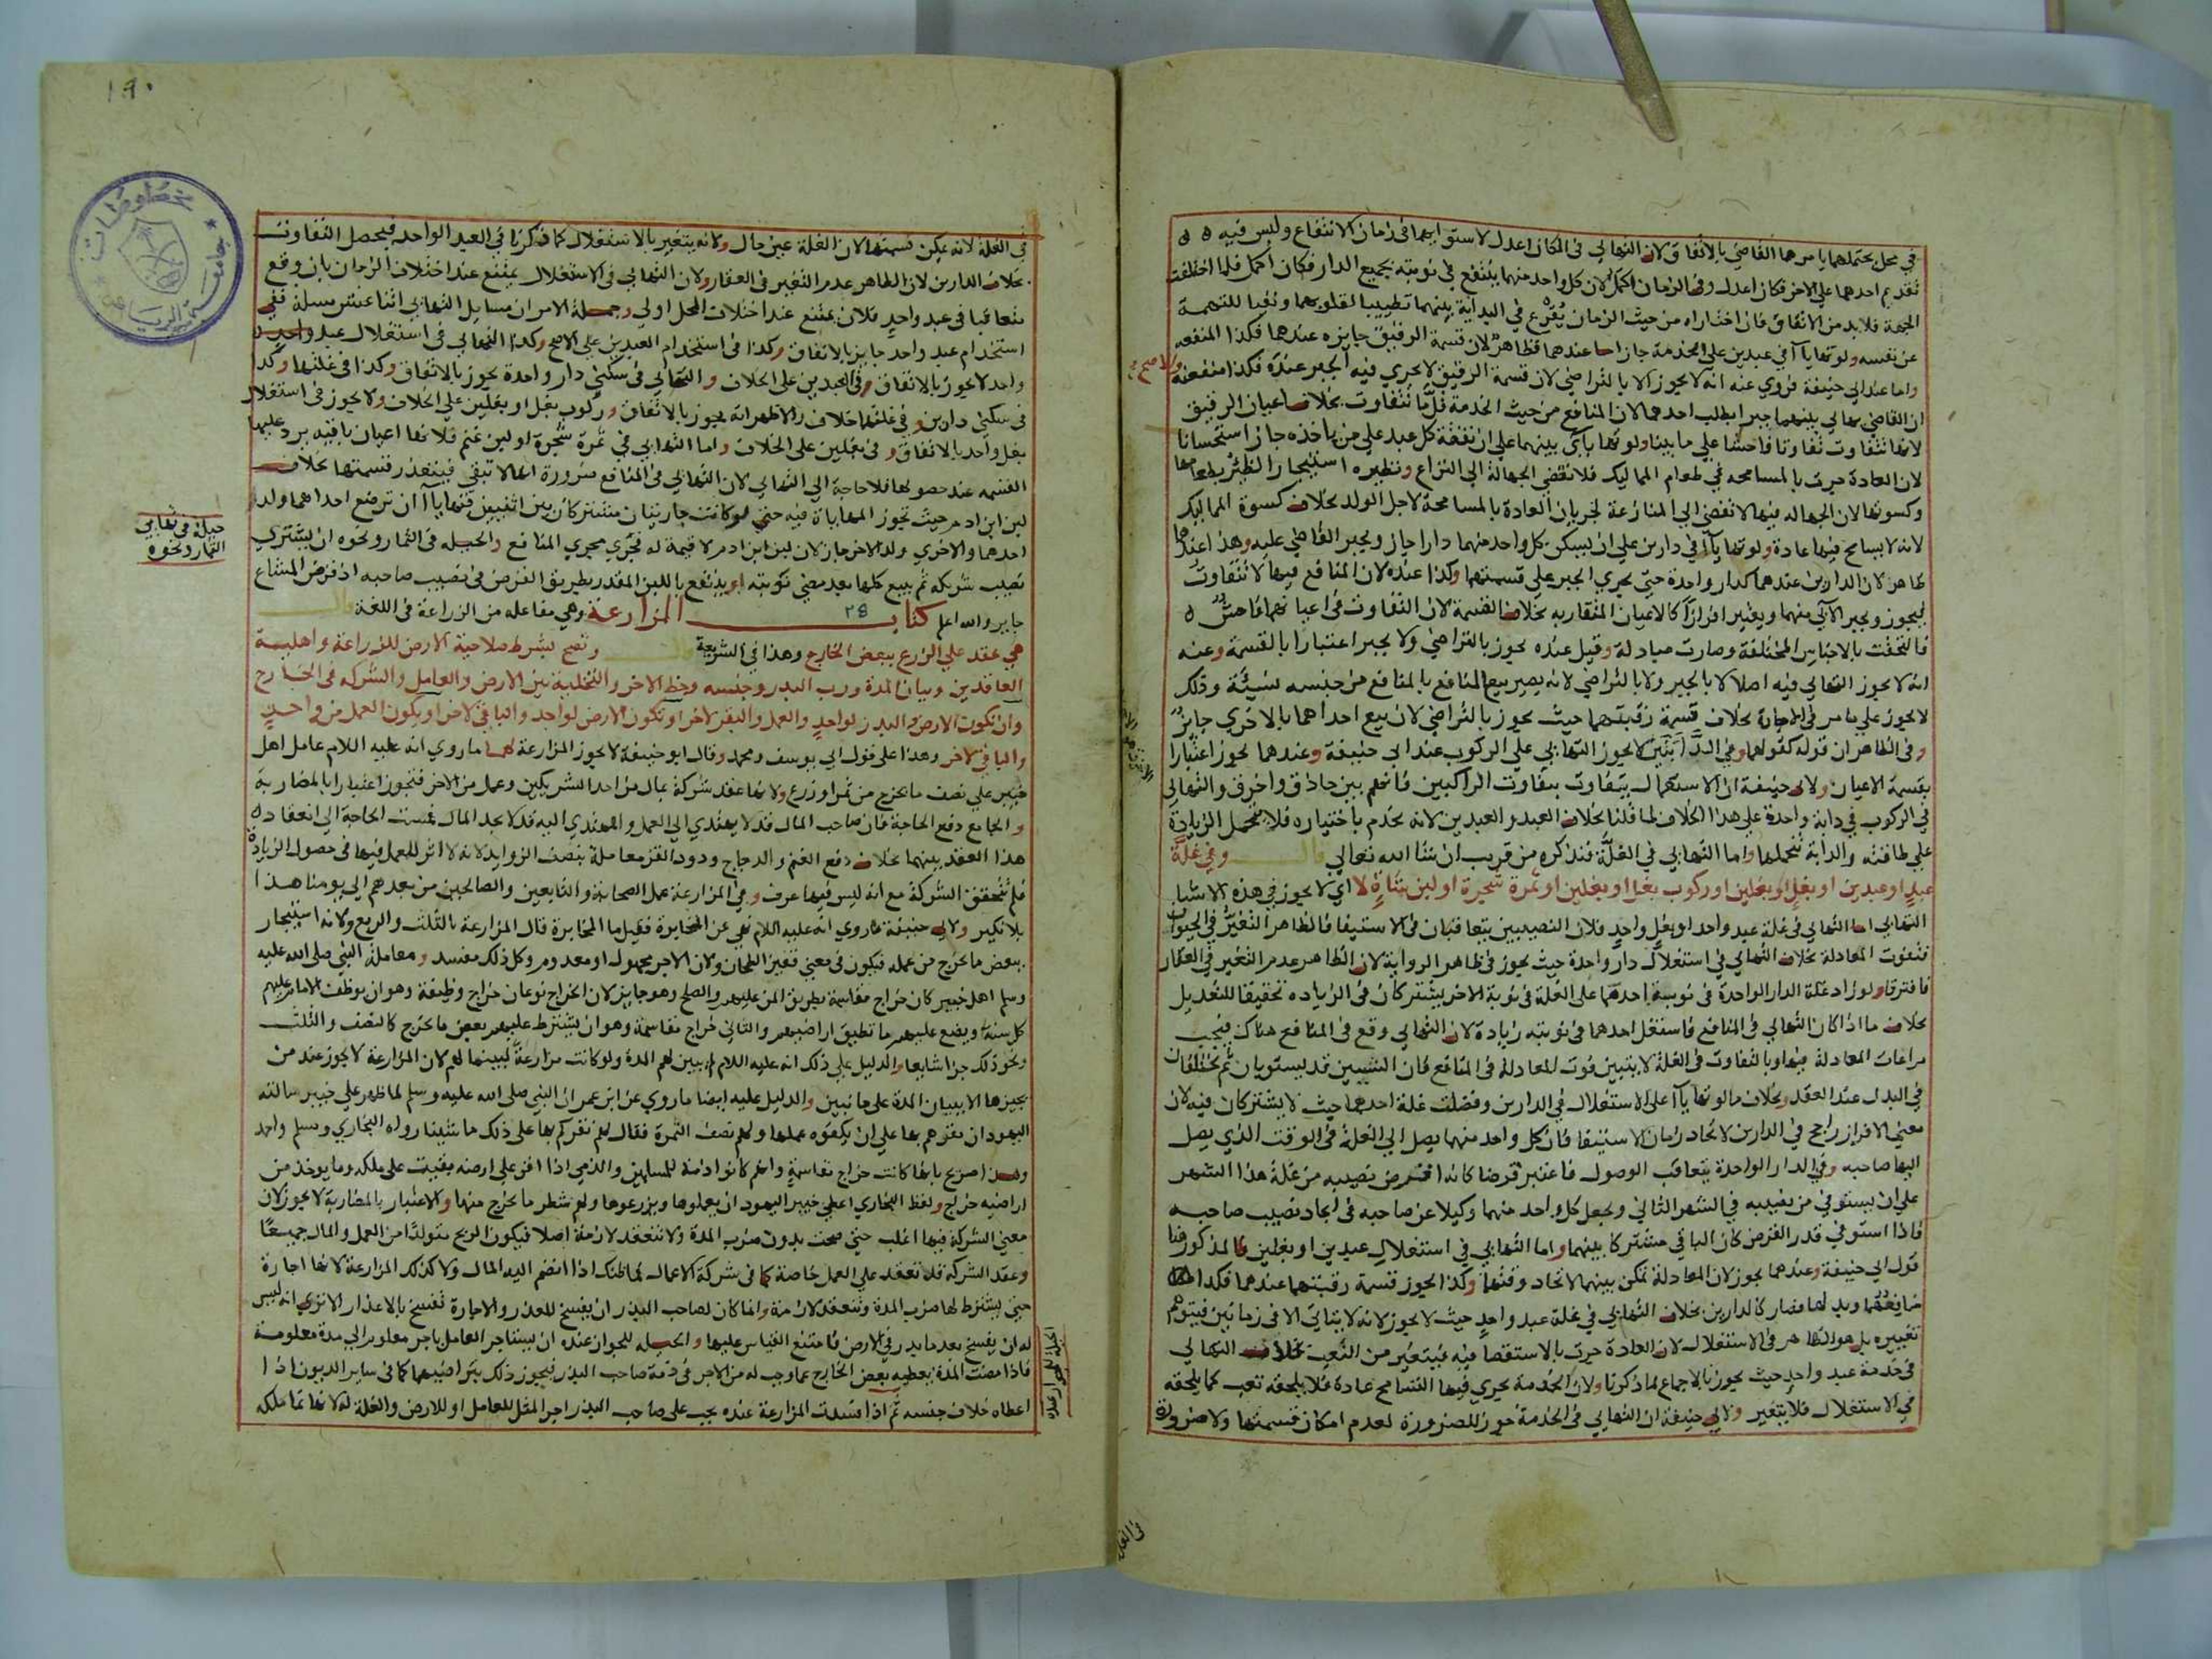 في محل يحتملهما يامرهما القاضي بالاتفاق لان التهايي في المكان اعدل لاستوايهما في زمان الانتفاع وليس فيه
تقديم احدهما على الاخر فكان اعدل وفي الزمان اكمل لان كل واحد منهما ينتفع في نوبته بجميع الدار فكان اكمل فلما اختلفت
الجهة فلا بد من الاتفاق فان اختاراه من حيث الزمان يقرع في البداية بينهما تطييبا لقلوبهما ونفيا للتهمة
عن نفسه ولو تهايآ في عبدين على الخدمة جاز اما عندهما فظاهر لان قسمة الرقيق جايزه عندهما فكذا المنفعه
واما عند ابي حنيفة فروي عنه انه لا يجوز الا بالتراضي لان قسمة الرقيق لا يجري فيه الجبر عنده فكذا منفعته والاصح
ان القاضي يهايي بينهما جبرا بطلب احدهما لان المنافع من حيث الخدمة قلما تتفاوت بخلاف اعيان الرقيق
لانها تتفاوت تفاوتا فاحشا على ما بينا ولو تهايآ بينهما على ان نفقة كل عبد على من ياخذه جاز استحسانا
لان العادة جرت بالمسامحه في طعام المماليك فلا تفضي الجهالة الى النزاع ونظيره استيجار الظئر بطعامها
وكسوتها لان الجهاله فيها لا تفضي الى المنازعة لجريان العادة بالمسامحة لاجل الولد بخلاف كسوة المماليك
لانه لا يسامح فيها عادة ولو تهايآ في دارين على ان يسكن كل واحد منهما دارا جاز ويجبر القاضي عليه وهذا عندهما
ظاهر لان الدارين عندهما كدار واحدة حتى يجري الجبر على قسمتهما وكذا عنده لان المنافع فيها لا تتفاوت
فيجوز ويجبر الآبي منهما ويعتبر افرازا كالاعيان المتقاربه بخلاف القسمة لان التفاوت في اعيانهما فاحش
فالتحقت بالاجناس المختلفة وصارت مبادلة وقيل عنده يجوز بالتراضي ولا يجبر اعتبارا بالقسمة وعنه
انه لا يجوز التهايي فيه اصلا لا بالجبر ولا بالتراضي لانه يصير بيع المنافع بالمنافع من جنسه نسيئة وذلك
لا يجوز على ما مر في الاجارة بخلاف قسمة رقبتهما حيث يجوز بالتراضي لان بيع احداهما بالاخرى جايز
وفي الظاهر ان قوله كقولهما وفي الدابتين لا يجوز التهايي على الركوب عند ابي حنيفة وعندهما يجوز اعتبارا
بقسمة الاعيان ولابي حنيفة ان الاستعمال يتفاوت بتفاوت الراكبين فانهم بين حاذق واخرق والتهايي
في الركوب في دابة واحدة على هذا الخلاف لما قلنا بخلاف العبد والعبدين لانه يخدم باختياره فلا يتحمل الزيادة
على طاقته والدابة تتحملها واما التهايي في الغلة فنذكره من قريب ان شا الله تعالى قال وفي غلة
عبد او عبدين او بغل او بغلين او ركوب بغل او بغلين او ثمرة شجرة او لبن شاة لا اي لا يجوز في هذه الاشيا
التهايي اما التهايي في غلة عبد واحد او بغل واحد فلان النصيبين يتعاقبان في الاستيفا فالظاهر التغير في الحيوان
فتفوت المعادلة بخلاف التهايي في استغلال دار واحدة حيث يجوز في ظاهر الرواية لان الظاهر عدم التغير في العقار
فافترقا ولو زاد غلة الدار الواحدة في نوبة احدهما على الغلة في نوبة الاخر يشتركان في الزيادة تحقيقا للتعديل
بخلاف ما اذا كان التهايي في المنافع فاستغل احدهما في نوبته زيادة لان التهايي وقع في المنافع هناك فيجب
مراعات المعادلة فيها وبالتفاوت في الغلة لا يتبين فوت المعادلة في المنافع فان الشيئين قد يستويان ثم يختلفان
في البدل عند العقد وبخلاف ما لو تهايآ على الاستغلال في الدارين وفضلت غلة احدهما حيث لا يشتركان فيه لان
معنى الافراز راجح في الدارين لاتحاد زمان الاستيفا فان كل واحد منهما يصل الى الغلة في الوقت الذي يصل
اليها صاحبه وفي الدار الواحدة يتعاقب الوصول فاعتبر قرضا كانه اقترض نصيبه من غلة هذا الشهر
على ان يستوفي من نصيبه في الشهر الثاني ويجعل كل واحد منهما وكيلا عن صاحبه في ايجار نصيب صاحبه
فاذا استوفي قدر القرض كان الباقي مشتركا بينهما واما التهايي في استغلال عبدين او بغلين فالمذكور هنا
قول ابي حنيفة وعندهما يجوز لان المعادلة تمكن بينهما لاتحاد وقتها وكذا يجوز قسمة رقبتهما عندهما فكذا
منافعهما وبدلها فصار كالدارين بخلاف التهايي في غلة عبد واحد حيث لا يجوز لانه لا يتاتى الا في زمانين فيتوهم
تغييره بل هو الظاهر في الاستغلال لان العادة جرت بالاستقصا فيه فيتغير من التعب بخلاف التهايي
في خدمة عبد واحد حيث يجوز بالاجماع لما ذكرنا ولان الخدمة يجري فيها التسامح عادة فلا يلحقه تعب كما يلحقه
في الاستغلال فلا يتغير ولابي حنيفة ان التهايي في الخدمة جوز للضرورة لعدم امكان قسمتها ولا ضرورة
في الغلة
١٩٠
في الغلة لانه يمكن قسمتها لان الغلة عين حال ولانه يتغير بالاستغلال كما ذكرنا في العبد الواحد فيحصل التفاوت
بخلاف الدارين لان الظاهر عدم التغير في العقار ولان التهايي في الاستغلال يمتنع عند اختلاف الزمان بان وقع
متعاقبا في عبد واحد فلان يمتنع عند اختلاف المحل اولى وجملة الامر ان مسايل التهايي اثنا عشر مسلة ففي
استخدام عبد واحد جايز بالاتفاق وكذا في استخدام العبدين على الاصح وكذا التهايي في استغلال عبد واحد
واحد لا يجوز بالاتفاق وفي العبدين على الخلاف والتهايي في سكنى دار واحدة يجوز بالاتفاق وكذا في غلتها وكذا
في سكنى دارين وفي غلتهما خلاف والاظهر انه يجوز بالاتفاق وركوب بغل او بغلين على الخلاف ولا يجوز في استغلال
بغل واحد بالاتفاق وفي بغلين على الخلاف واما التهايي في ثمرة شجرة او لبن غنم فلانها اعيان باقيه يرد عليها
القسمه عند حصولها فلا حاجة الى التهايي لان التهايي في المنافع ضرورة انها لا تبقى فيتعذر قسمتها بخلاف
لبن ابن ادم حيث تجوز المهاياة فيه حتى لو كانت جاريتان مشتركان بين اثنين فتهايآ ان ترضع احداهما ولد
احدهما والاخرى ولد الاخر جاز لان لبن ابن ادم لا قيمة له فجرى مجرى المنافع والحيله في الثمار ونحوه ان يشتري
نصيب شريكه ثم يبيع كلها بعد مضي نوبته او ينتفع باللبن المقدر بطريق القرض في نصيب صاحبه اذ قرض المشاع
جايز والله اعلم كتاب المزارعة ٢٨ وهي مفاعله من الزراعة في اللغة قال
هي عقد على الزرع ببعض الخارج وهذا في الشريعة قال وتصح بشرط صلاحية الارض للزراعة واهلية
العاقدين وبيان المدة ورب البذر وجنسه وحظ الاخر والتخلية بين الارض والعامل والشركه في الخارج
وان تكون الارض والبذر لواحد والعمل والبقر لاخر او تكون الارض لواحد والباقي لاخر او يكون العمل من واحد
والباقي لاخر وهذا على قول ابي يوسف ومحمد وقال ابو حنيفة لا يجوز المزارعة لهما ما روي انه عليه السلام عامل اهل
خيبر على نصف ما يخرج من ثمر او زرع ولانها عقد شركة بمال من احد الشريكين وعمل من الاخر فتجوز اعتبارا بالمضاربة
والجامع دفع الحاجة فان صاحب المال قد لا يهتدي الى العمل والمهتدي اليه قد لا يجد المال فمست الحاجة الى انعقاد
هذا العقد بينهما بخلاف دفع الغنم والدجاج ودود القز معاملة بنصف الزوايد لانه لا اثر للعمل فيها في حصول الزيادة
فلم تتحقق الشركة مع انه ليس فيها عرف وفي المزارعة عمل الصحابة والتابعين والصالحين من بعدهم الى يومنا هذا
بلا نكير ولابي حنيفة ما روي انه عليه السلام نهى عن المخابرة فقيل ما المخابرة قال المزارعة بالثلث والربع ولانه استيجار
ببعض ما يخرج من عمله فيكون في معنى قفيز الطحان ولان الاجر مجهول او معدوم وكل ذلك مفسد ومعاملة النبي صلى الله عليه
وسلم اهل خيبر كان خراج مقاسمة بطريق المن عليهم والصلح وهو جايز لان الخراج نوعان خراج وظيفة وهو ان يوظف الامام عليهم
كل سنة ويضع عليهم ما تطيق اراضيهم والثاني خراج مقاسمة وهو ان يشترط عليهم بعض ما يخرج كالنصف والثلث
ونحو ذلك جزا شايعا والدليل على ذلك انه عليه السلام لم يبين لهم المدة ولو كانت مزارعة لبينها لهم لان المزارعة لا يجوز عند من
يجيزها الا ببيان المدة على ما نبين والدليل عليه ايضا ما روي عن ابن عمر ان النبي صلى الله عليه وسلم لما ظهر على خيبر سالته
اليهود ان يقرهم بها على ان يكفوه عملها ولهم نصف الثمرة فقال لهم نقركم بها على ذلك ما شينا رواه البخاري ومسلم واحمد
وهذا صريح بانها كانت خراج مقاسمة وانهم كانوا ذمة للمسلمين والذمي اذا اقر على ارضه بقيت على ملكه وما يوخذ من
اراضيه خراج ولفظ البخاري اعطى خيبر اليهود ان يعملوها ويزرعوها ولهم شطر ما يخرج منها والاعتبار بالمضاربة لا يجوز لان
معنى الشركة فيها اغلب حتى صحت بدون ضرب المدة ولا تنعقد لازمة اصلا فيكون الربح متولدا من العمل والمال جميعا
وعقد الشركة قد تنعقد على العمل خاصة كما في شركة الاعمال فما ظنك اذا انضم اليه المال ولا كذلك المزارعة لانها اجارة
حتى يشترط لها ضرب المدة وتنعقد لازمة وانما كان لصاحب البذر ان يفسخ للعذر والاجارة تفسخ بالاعذار الا ترى انه ليس
له ان يفسخ بعد ما بذر في الارض فامتنع القياس عليها والحيله للجواز عنده ان يستاجر العامل باجر معلوم الى مدة معلومة
فاذا مضت المدة يعطيه بعض الخارج عما وجب له من الاجر في ذمة صاحب البذر فيجوز ذلك بتراضيهما كما في ساير الديون اذا
اعطاه خلاف جنسه ثم اذا فسدت المزارعة عنده يجب على صاحب البذر اجر المثل للعامل او للارض والغلة له لانها نما ملكه
حيلة في تهايي
الثمار ونحوه
مخطوطات
جامعة الرياض